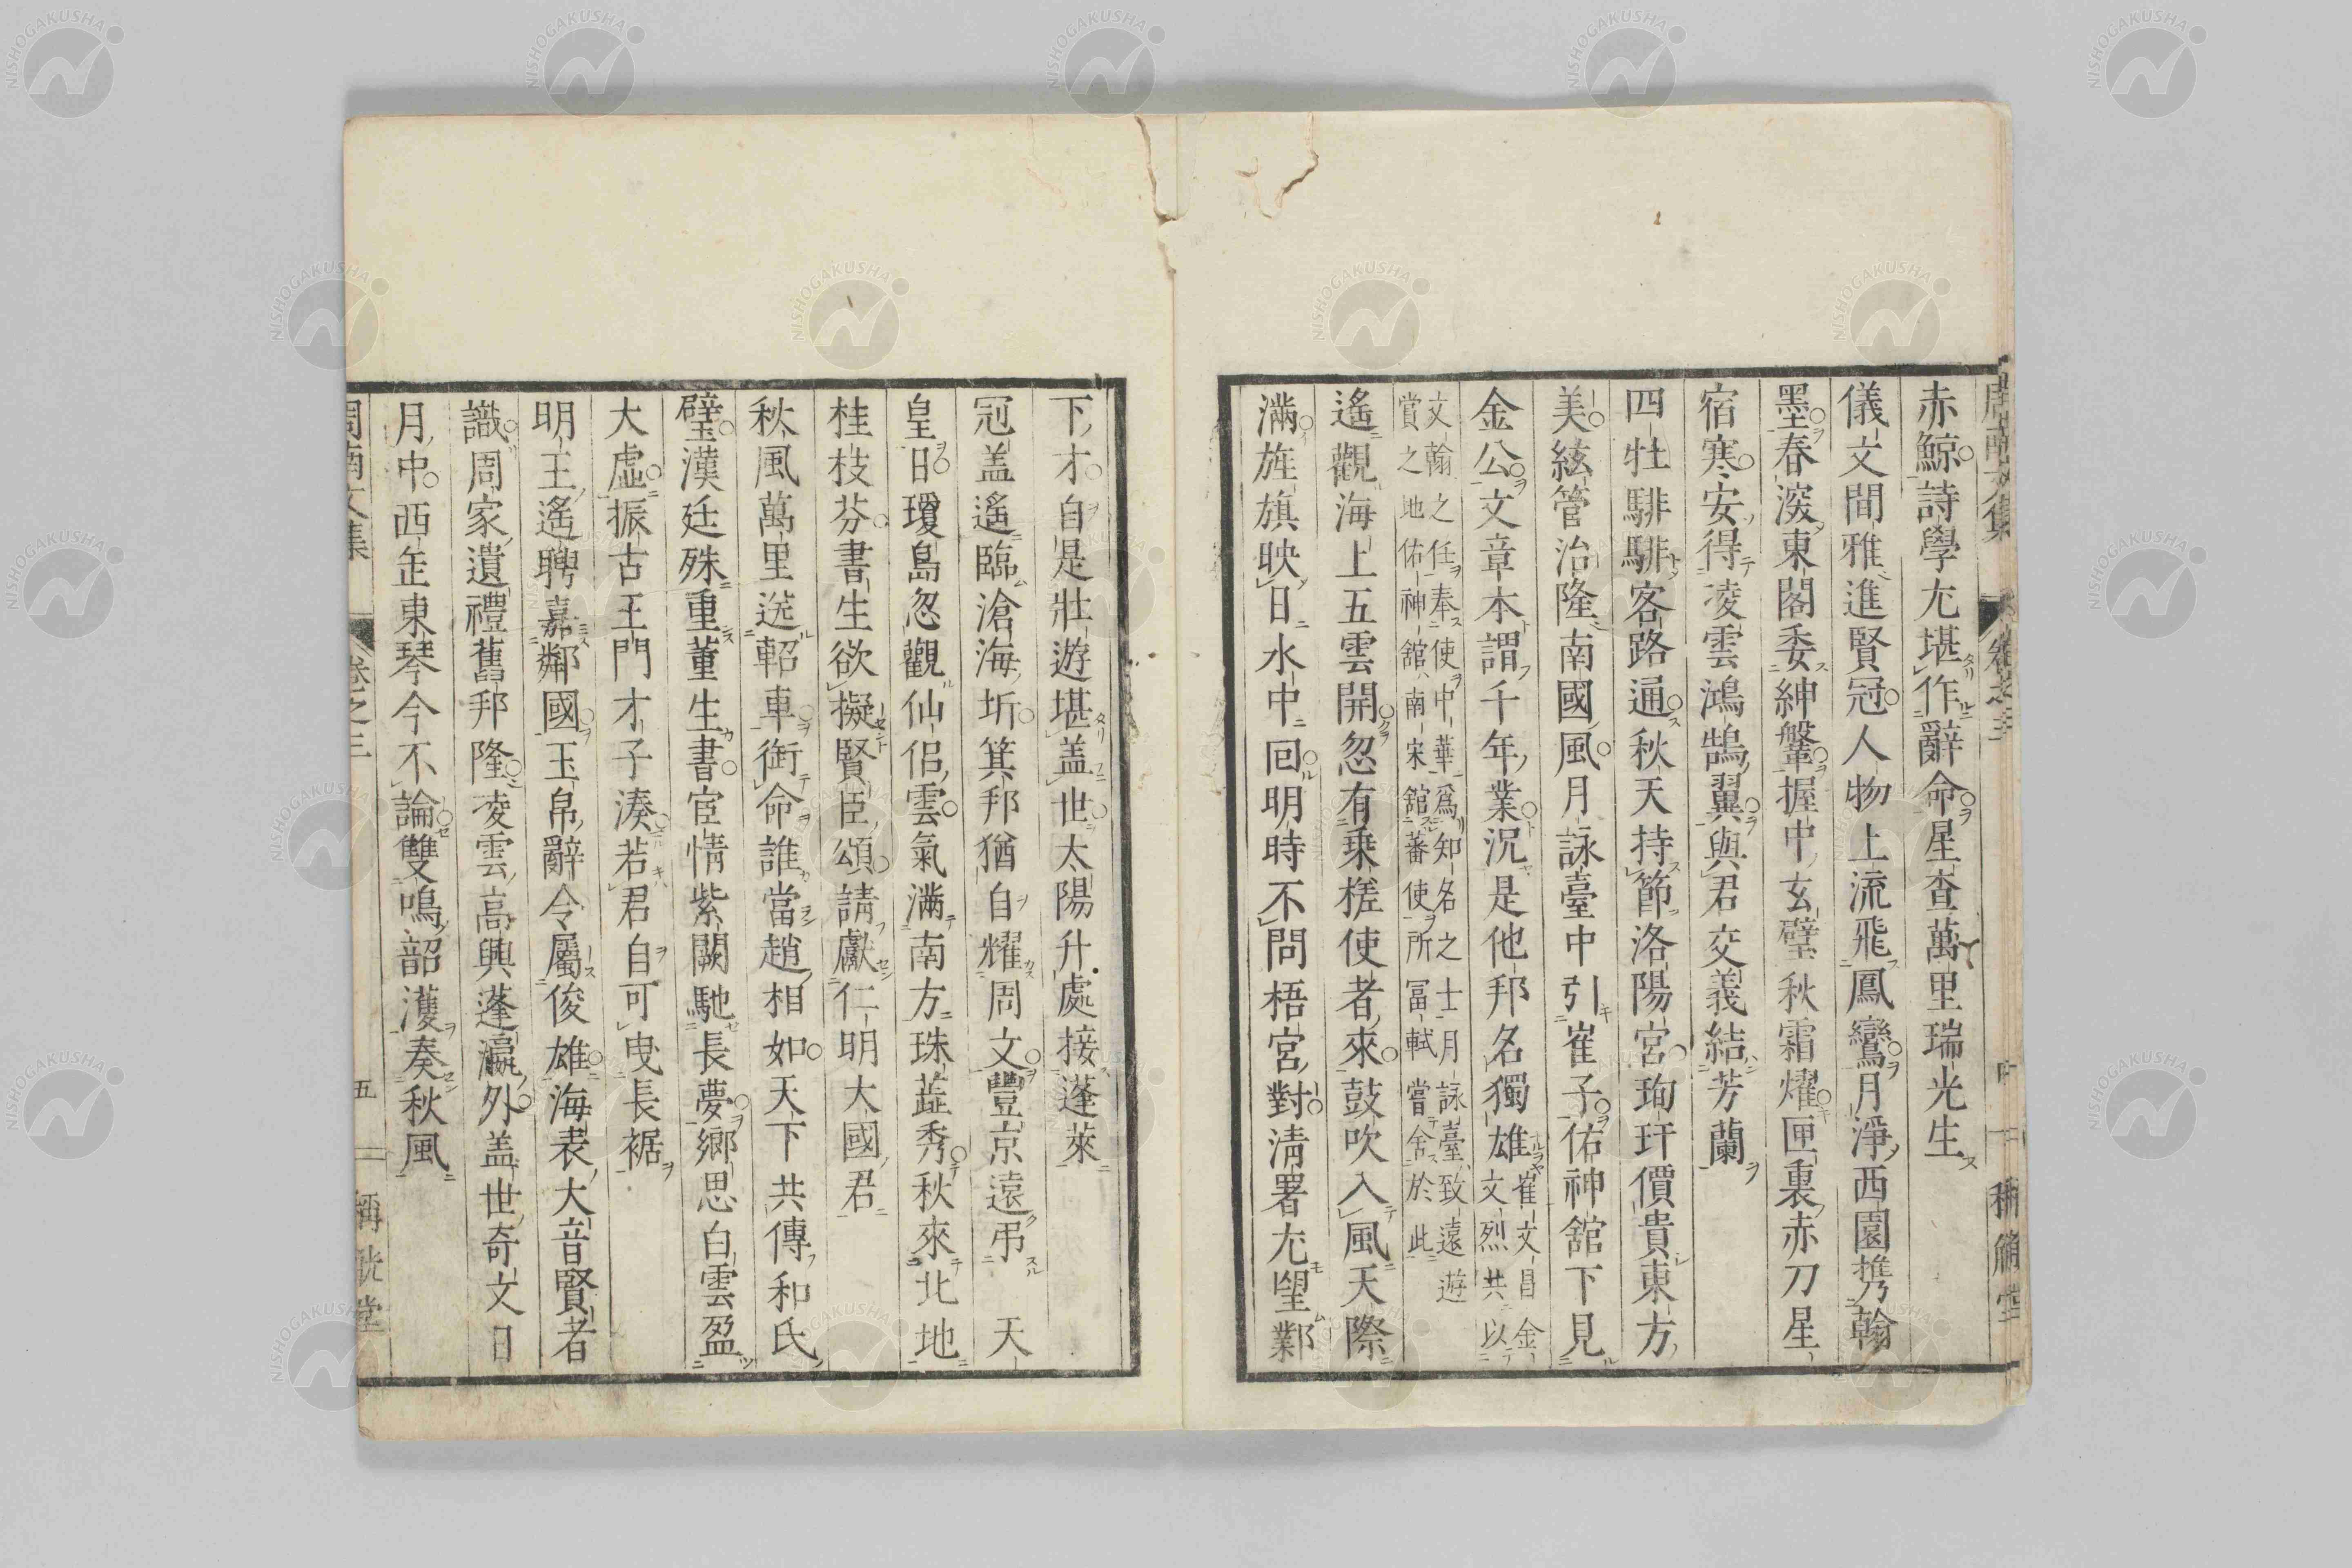 赤鯨詩學尤堪作辭命星查萬里瑞光生
儀文間雅進賢冠人物上流飛鳳鸞月淨西園携翰
墨春深東閣委紳鞶握中玄璧秋霜燿匣裏赤刀星
宿寒安得凌雲鴻鵠翼與君交義結芳蘭
四牡騑騑客路通秋天持節洛陽宮珣玕價貴東方
美絃管治隆南國風月詠臺中引崔子佑神舘下見
金公文章本謂千年業況是他邦名獨雄崔文昌金
文烈共以
文翰之任奉使中華爲知名之士月詠臺致遠遊
賞之地佑神舘南宋舘蕃使所冨軾嘗舍於此
遙觀海上五雲開忽有乗槎使者來鼓吹入風天際
滿旌旗映日水中回明時不問梧宮對清署尤望鄴
下才自是壯遊堪盖世太陽升處接蓬萊
冠盖遙臨滄海圻箕邦猶自耀周文豐京遠弔天
皇日瓊島忽觀仙侶雲氣滿南方珠蘂秀秋來北地
桂枝芬書生欲擬賢臣頌請獻仁明大國君
秋風萬里送軺車銜命誰當趙相如天下共傳和氏
璧漢廷殊重董生書宦情紫闕馳長夢鄉思白雲盈
大虛振古王門才子湊若君自可曳長裾
明王遙聘嘉鄰國玉帛辭令屬俊雄海表大音賢者
識周家遺禮舊邦隆凌雲高興蓬瀛外盖世奇文日
月中西缶東琴今不論雙鳴韶濩奏秋風
周南文集
卷之三
五
稱觥堂
NISHOGAKUSHA